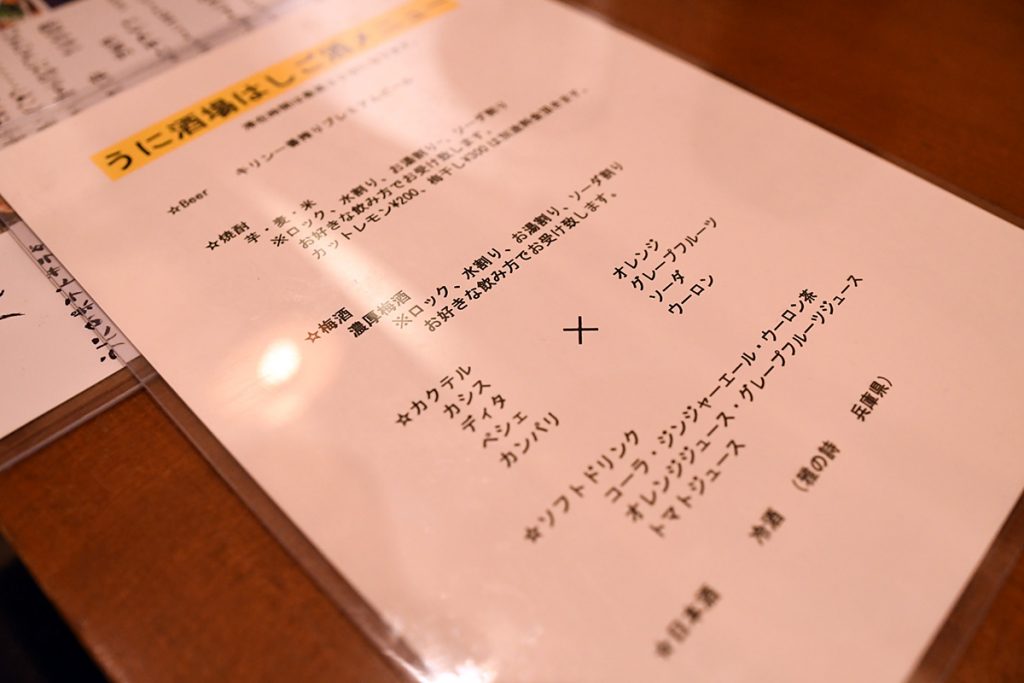 うに酒場はしご酒メニュー
☆Beer
キリン一番搾りプレミアムビール
☆焼酎
芋・麦・米
※ロック、水割り、お湯割り、ソーダ割り
お好きな飲み方でお受け致します。
カットレモン¥200、梅干し¥300は別途料金頂きます。
☆梅酒
濃厚梅酒
※ロック、水割り、お湯割り、ソーダ割り
お好きな飲み方でお受け致します。
☆カクテル
カシス
ディタ
ペシェ
カンパリ
×
オレンジ
グレープフルーツ
ソーダ
ウーロン
☆ソフトドリンク
コーラ・ジンジャーエール・ウーロン茶
オレンジジュース・グレープフルーツジュース
トマトジュース
☆日本酒
冷酒 (雅の詩 兵庫県)